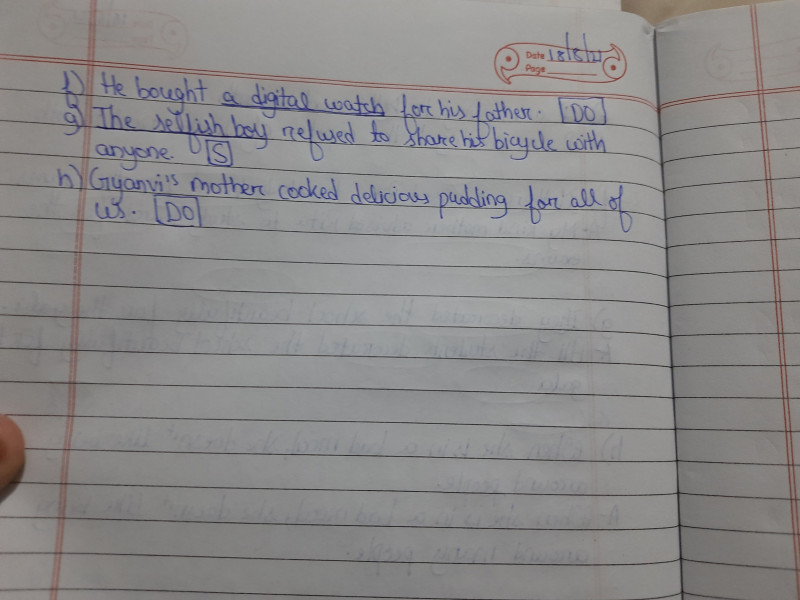 Date 18/8/21
Page
f) He bought a digital watch for his father. [DO]
g) The selfish boy refused to share his bicycle with
anyone. [S]
h) Gyanvi's mother cooked delicious pudding for all of
us. [DO]